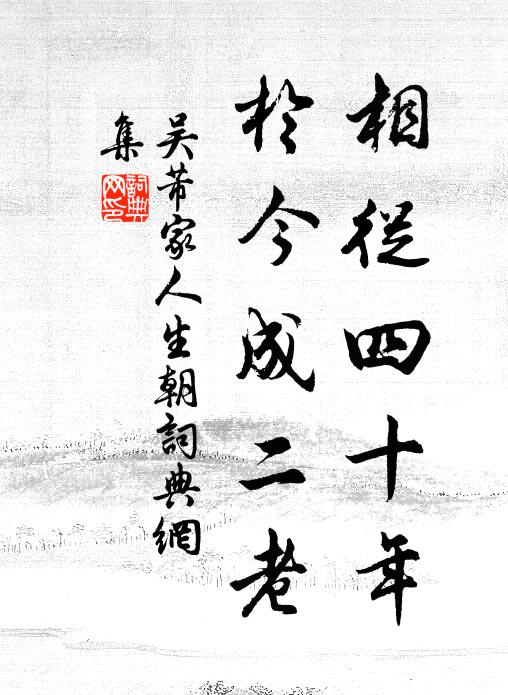 相從四十年
於今成二老
吴芾家人生朝詞典網
集
詞典
网印